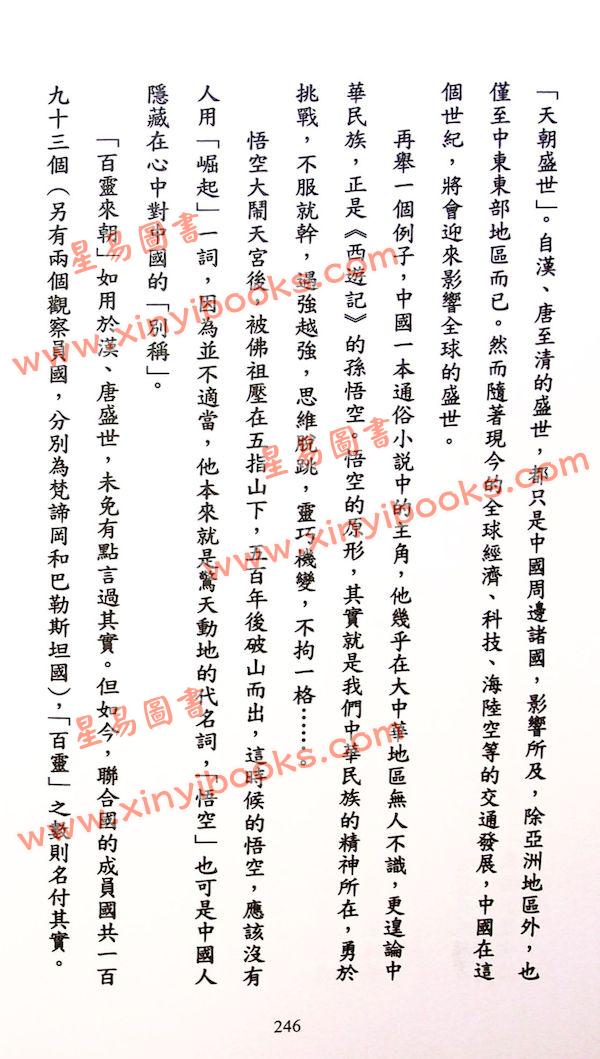 「天朝盛世」。自漢、唐至清的盛世，都只是中國周邊諸國，影響所及，除亞洲地區外，也
僅至中東東部地區而已。然而隨著現今的全球經濟、科技、海陸空等的交通發展，中國在這
個世紀，將會迎來影響全球的盛世。
再舉一個例子，中國一本通俗小說中的主角，他幾乎在大中華地區無人不識，更遑論中
華民族，正是《西遊記》的孫悟空。悟空的原形，其實就是我們中華民族的精神所在，勇於
挑戰，不服就幹，遇強越強，思維脫跳，靈巧機變，不拘一格……。
悟空大鬧天宮後，被佛祖壓在五指山下，五百年後破山而出，這時候的悟空，應該沒有
人用「崛起」一詞，因為並不適當，他本來就是驚天動地的代名詞，「悟空」也可是中國人
隱藏在心中對中國的「別稱」。
「百靈來朝」如用於漢、唐盛世，未免有點言過其實。但如今，聯合國的成員國共一百
九十三個（另有兩個觀察員國，分別為梵諦岡和巴勒斯坦國），「百靈」之數則名付其實。
246
星易圖書
www.xinyibooks.com
星易圖書
www.xinyibooks.com
星易圖書
www.xinyibooks.com